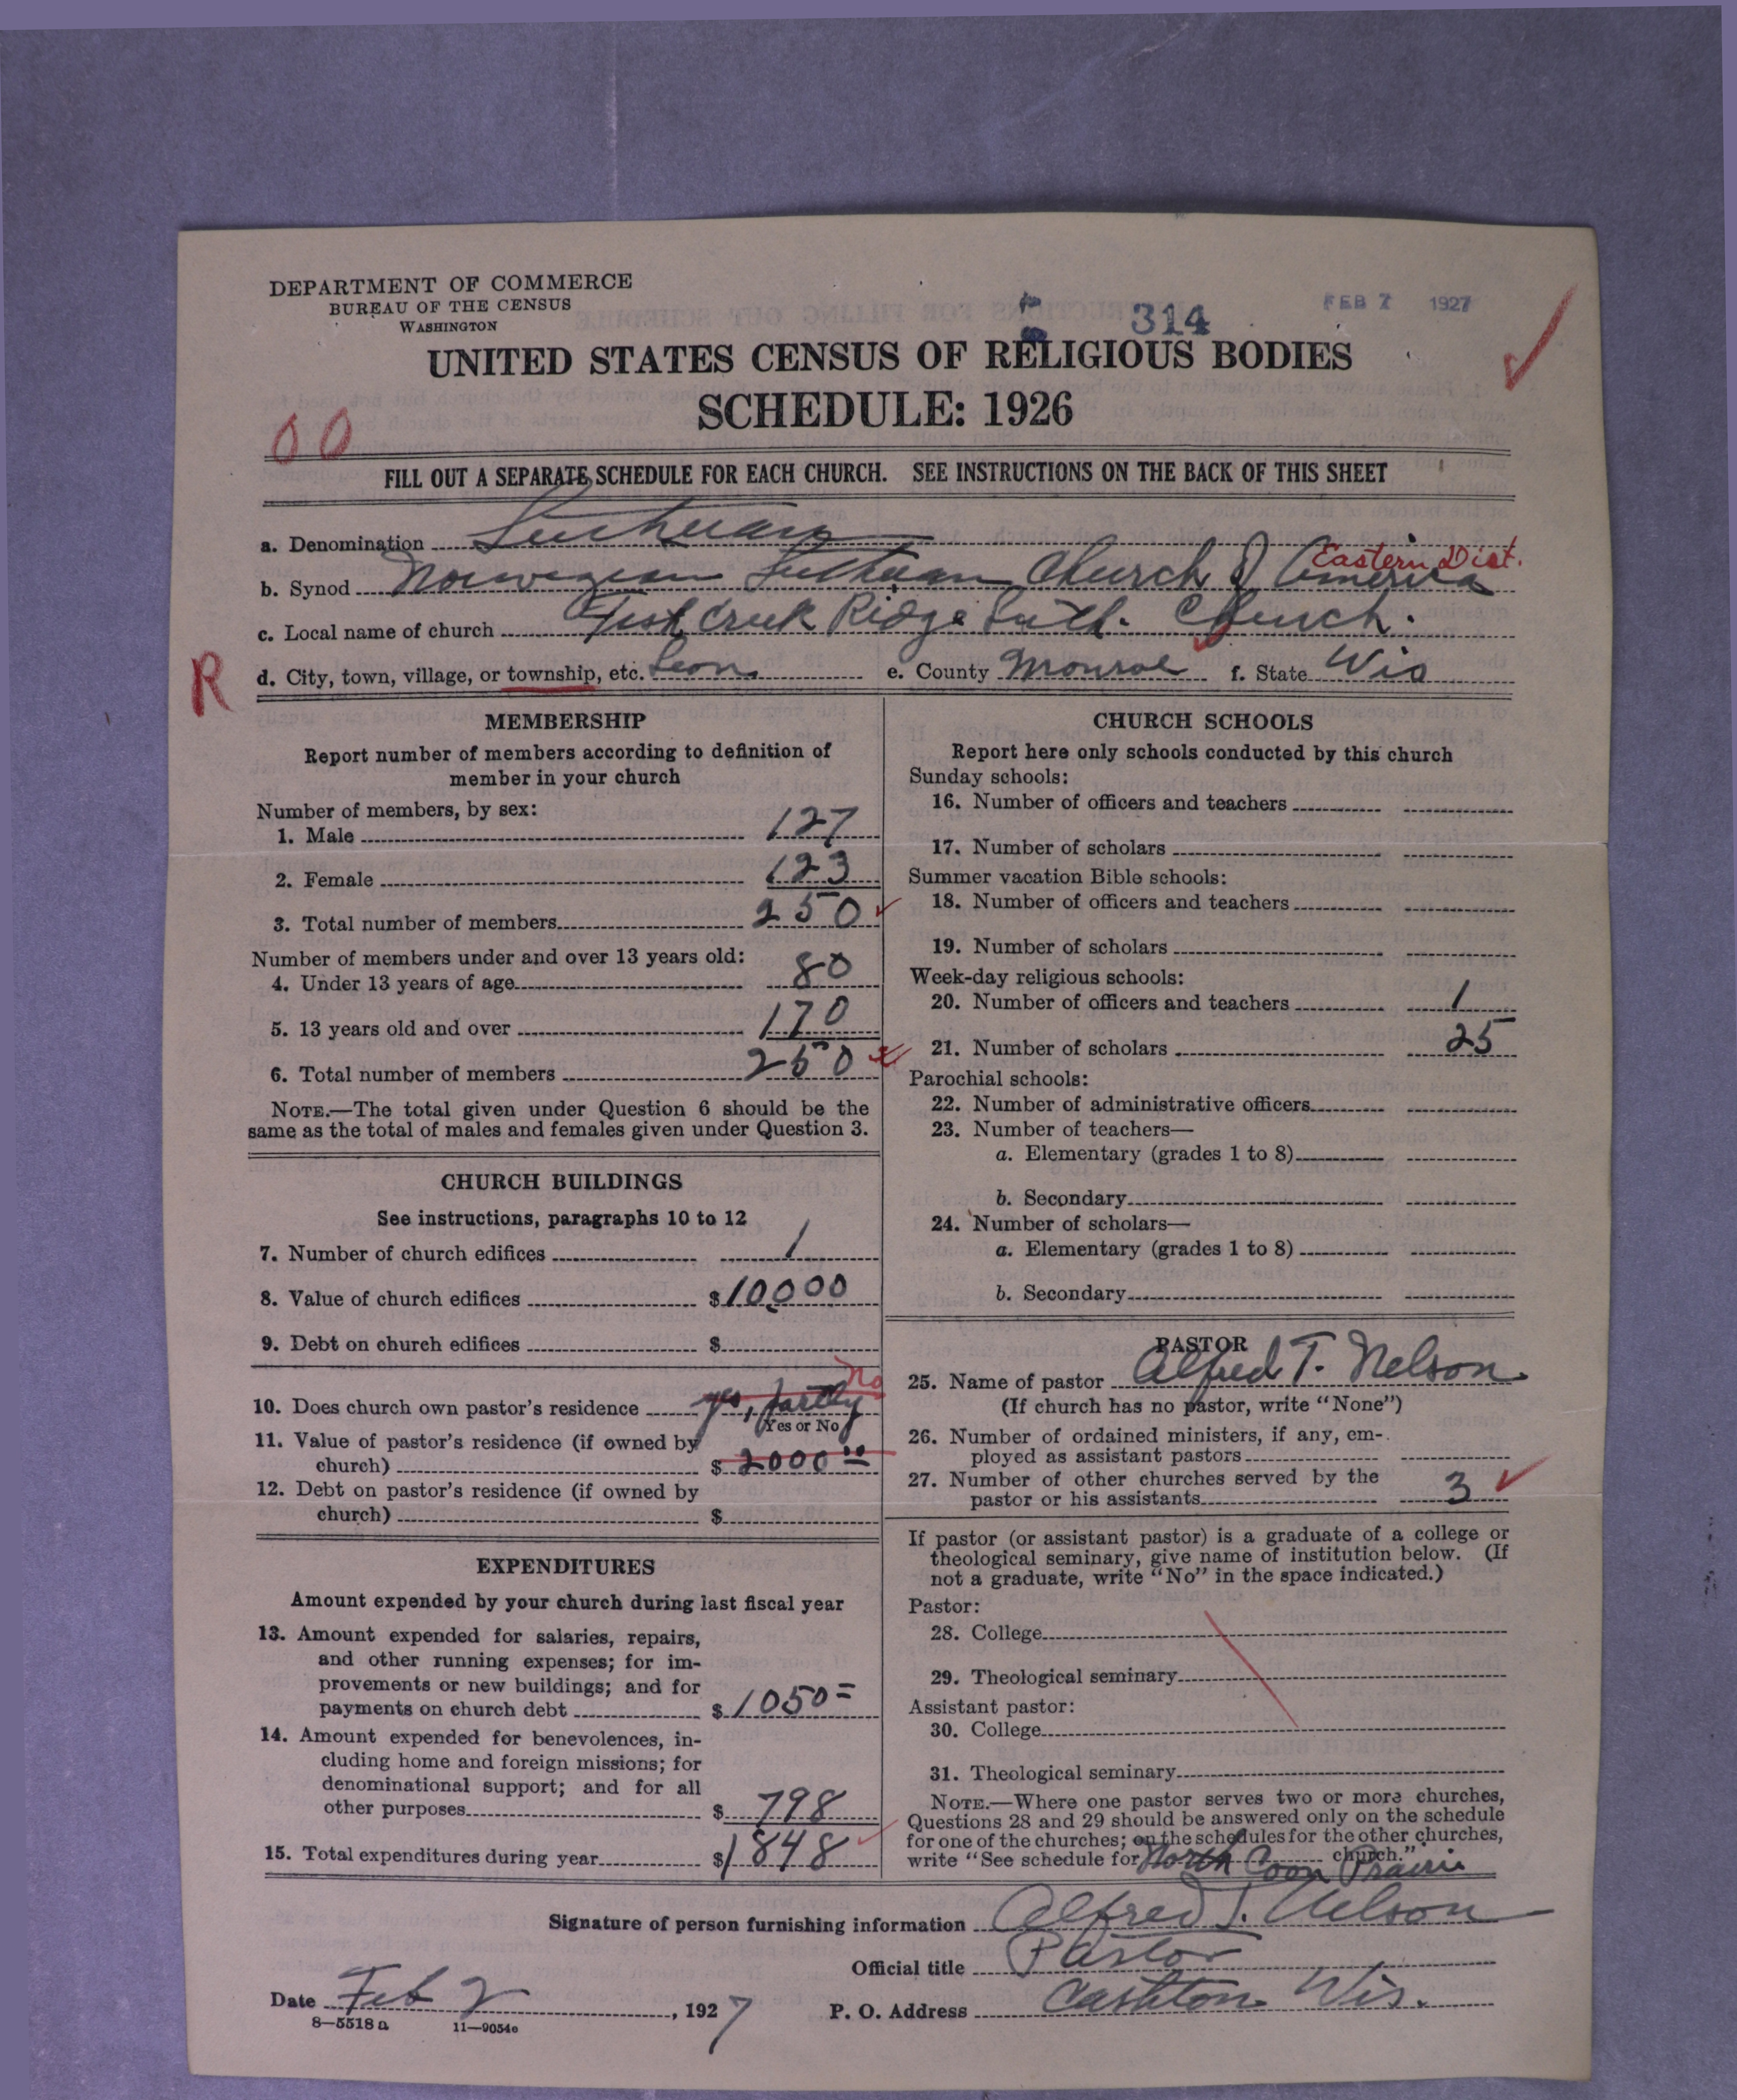 DEPARTMENT OF COMMERCE
BUREAU OF THE CENSUS
WASHINGTON
314
FEB 7 1927
UNITED STATES CENSUS OF RELIGIOUS BODIES
SCHEDULE: 1926
00
FILL OUT A SEPARATE SCHEDULE FOR EACH CHURCH. SEE INSTRUCTIONS ON THE BACK OF THIS SHEET
a. Denomination Lutheran
Eastern Dist.
b. Synod Norwegian Lutheran Church of America
c. Local name of church Creek Ridge Luth. Church.
R
d. City, town, village, or township, etc. Leon e. County Monroe f. State Wis
MEMBERSHIP
Report number of members according to definition of
member in your church
Number of members, by sex:
1. Male 127
2. Female 123
3. Total number of members 250
Number of members under and over 13 years old:
4. Under 13 years of age 80
5. 13 years old and over 170
6. Total number of members 250
NOTE.—The total given under Question 6 should be the
same as the total of males and females given under Question 3.
CHURCH BUILDINGS
See instructions, paragraphs 10 to 12
7. Number of church edifices 1
8. Value of church edifices $10,000
9. Debt on church edifices $
No
10. Does church own pastor's residence yes, partly
(Yes or No)
11. Value of pastor's residence (if owned by
church) $2000 00
12. Debt on pastor's residence (if owned by
church) $
EXPENDITURES
Amount expended by your church during last fiscal year
13. Amount expended for salaries, repairs,
and other running expenses; for im-
provements or new buildings; and for
payments on church debt $1050=
14. Amount expended for benevolences, in-
cluding home and foreign missions; for
denominational support; and for all
other purposes $798
15. Total expenditures during year $1848
CHURCH SCHOOLS
Report here only schools conducted by this church
Sunday schools:
16. Number of officers and teachers
17. Number of scholars
Summer vacation Bible schools:
18. Number of officers and teachers
19. Number of scholars
Week-day religious schools:
20. Number of officers and teachers 1
21. Number of scholars 25
Parochial schools:
22. Number of administrative officers
23. Number of teachers—
a. Elementary (grades 1 to 8)
b. Secondary
24. Number of scholars—
a. Elementary (grades 1 to 8)
b. Secondary
PASTOR
25. Name of pastor Alfred T. Nelson
(If church has no pastor, write "None")
26. Number of ordained ministers, if any, em-
ployed as assistant pastors
27. Number of other churches served by the
pastor or his assistants 3
If pastor (or assistant pastor) is a graduate of a college or
theological seminary, give name of institution below. (If
not a graduate, write "No" in the space indicated.)
Pastor:
28. College
29. Theological seminary
Assistant pastor:
30. College
31. Theological seminary
NOTE.—Where one pastor serves two or more churches,
Questions 28 and 29 should be answered only on the schedule
for one of the churches; on the schedules for the other churches,
write "See schedule for North Coon Prairie church."
Signature of person furnishing information Alfred T. Nelson
Official title Pastor
Date Feb 2, 1927 P. O. Address Cashton Wis.
8—5518a 11—9054e